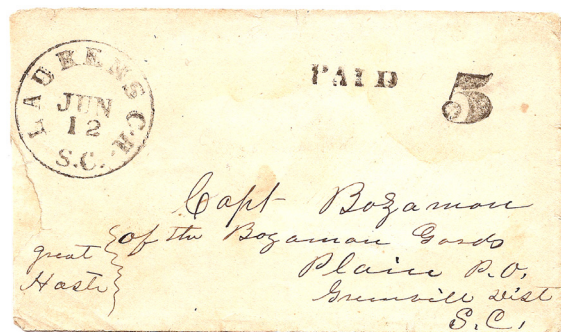 LAURENS C.H.
JUN
12
S.C.
PAID
5
Capt Bozamon
of the Bozamon Gards
Plain P.O,
Greenvill Dist
S.C,
great
Haste